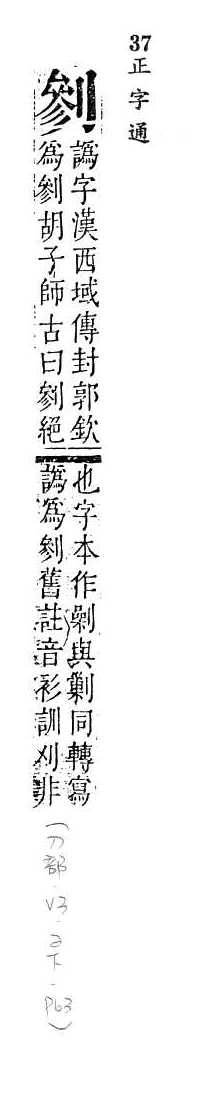 37正字通
剼
譌字漢西域傳封郭欽
爲剼胡子師古曰剼絕
也字本作劋與剿同轉寫
譌爲剼舊註音衫訓刈非
(刀部.V3.2下.P63)